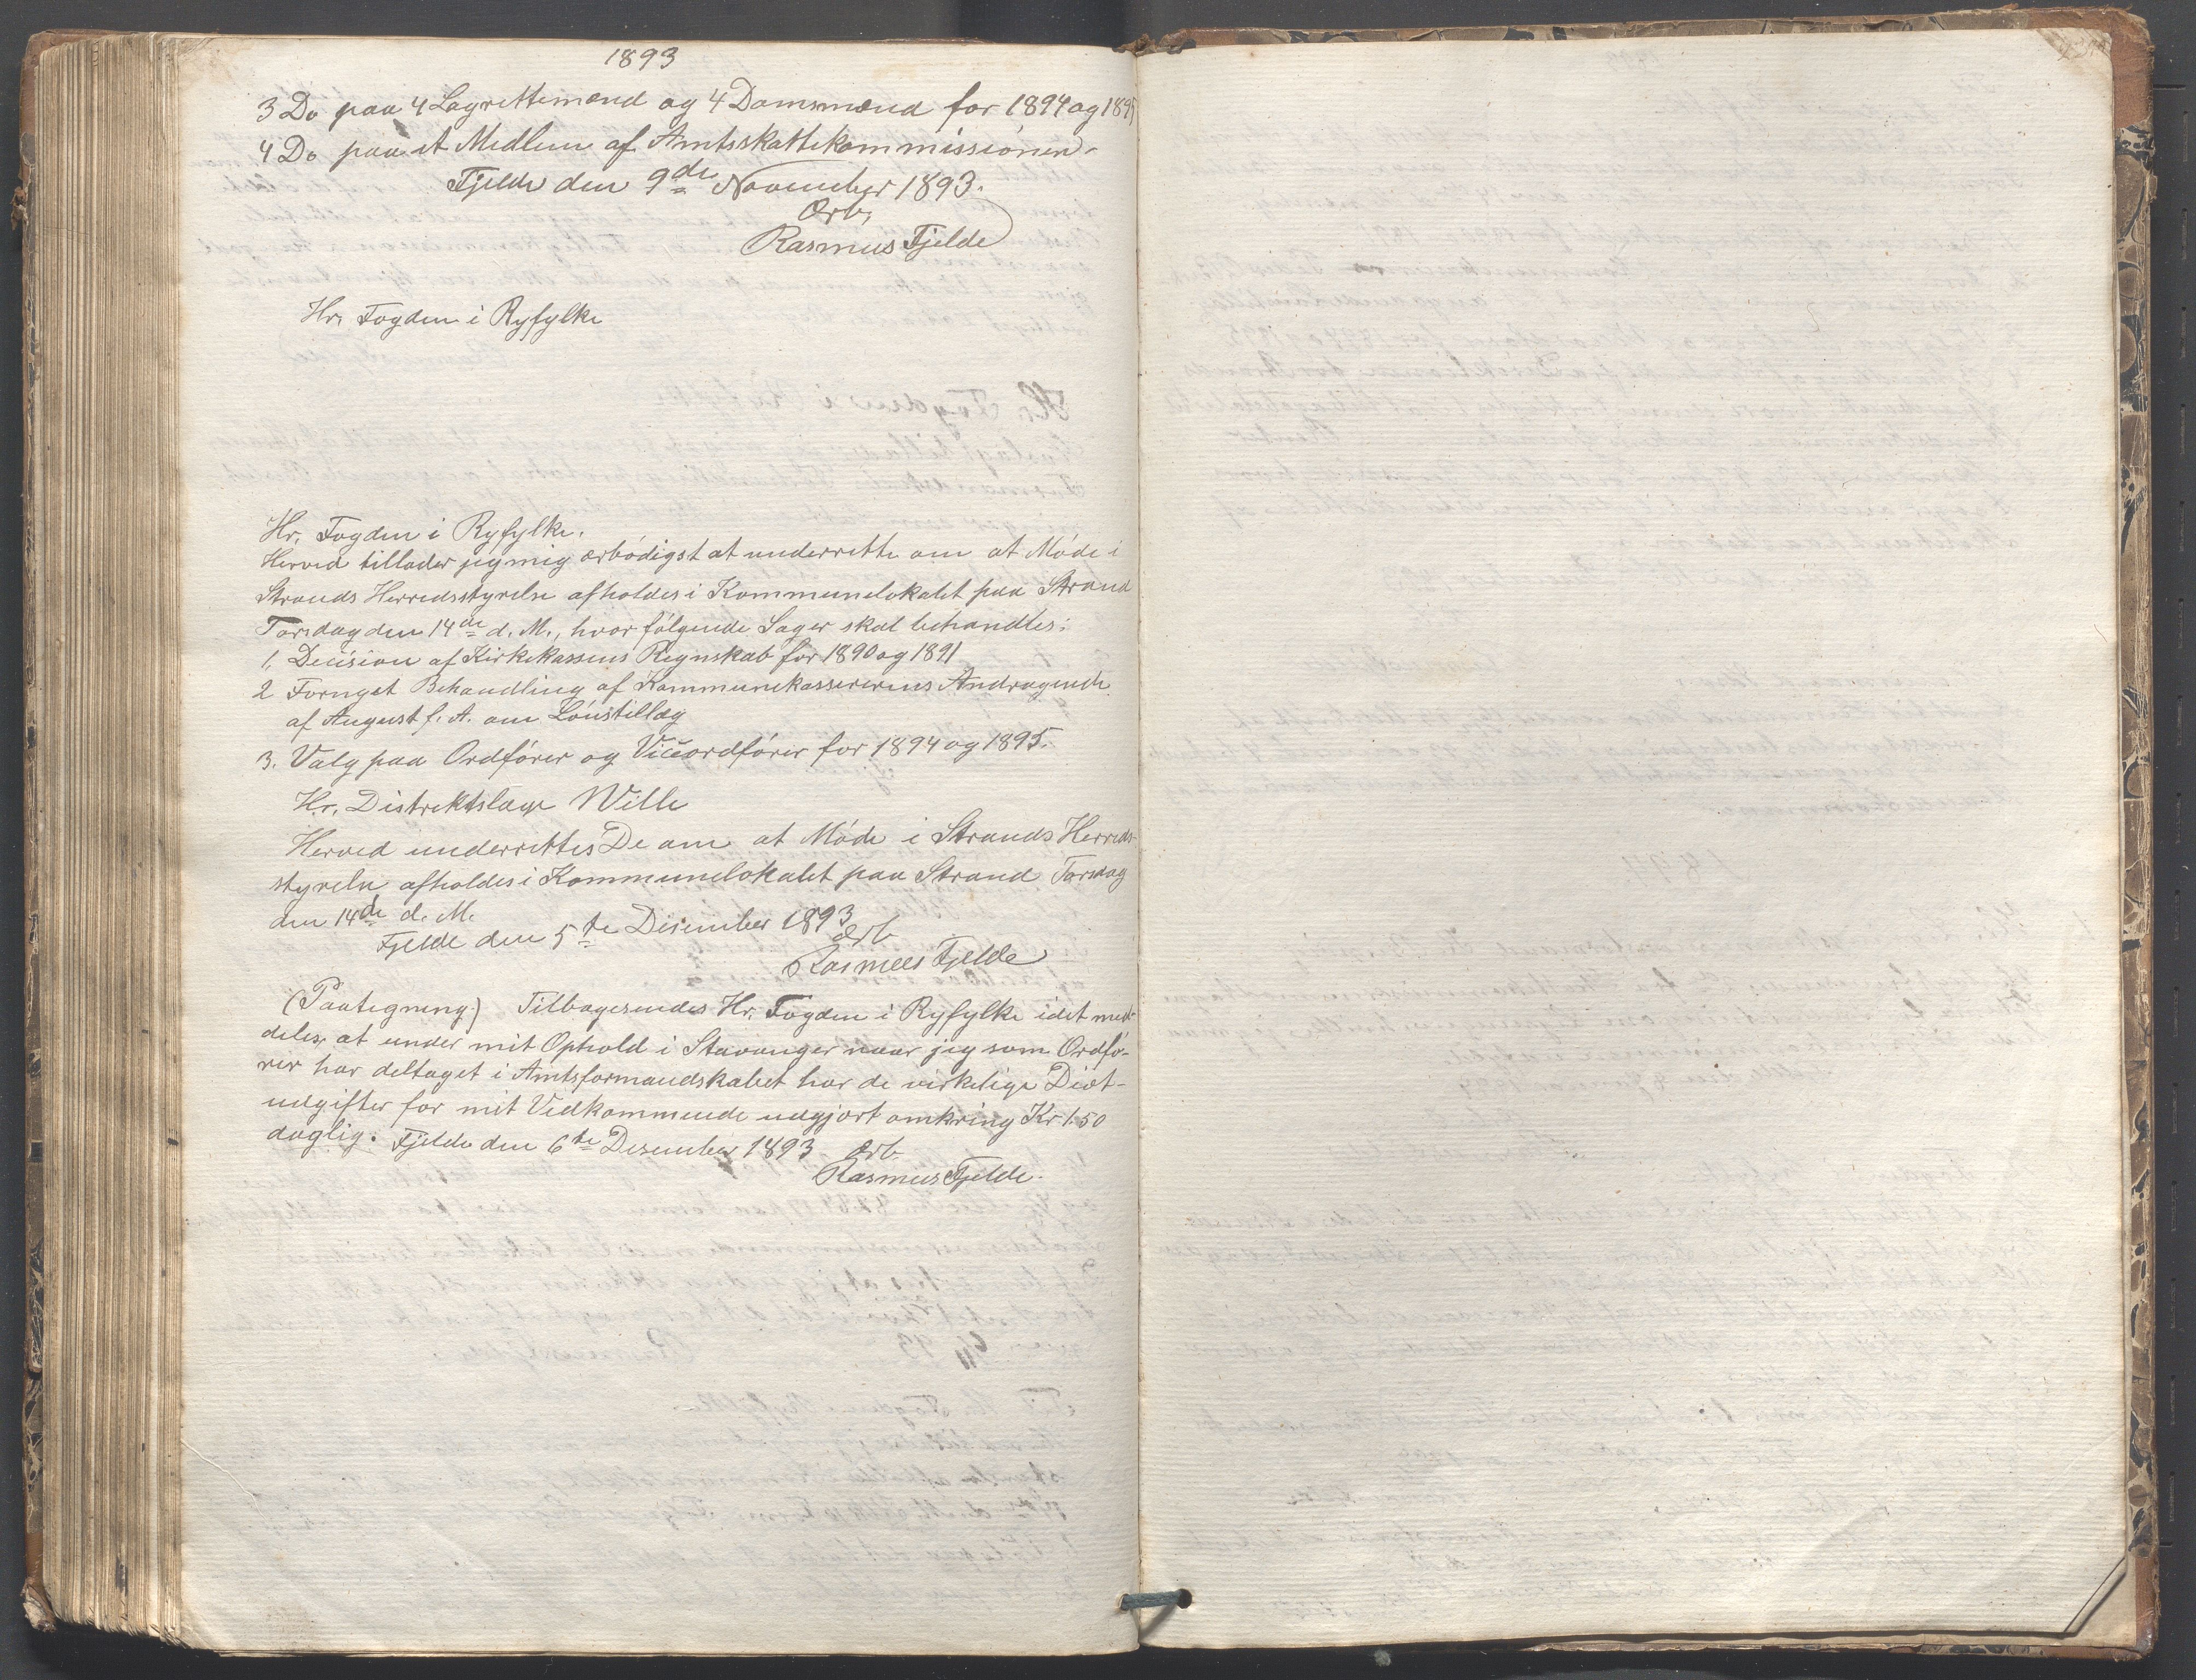 1893
3 Do paa 4 Lagrettemænd og 4 Domsmænd for 1894 og 1895
4 Do paa et Medlem af Amtsskattekommissionen.
Fjelde den 9de November 1893.
Ærb,
Rasmus Fjelde
Hr. Fogden i Ryfylke
Hr. Fogden i Ryfylke.
Herved tillader jeg mig ærbødigst at underrette om at Møde i
Strands Herredsstyrelse afholdes i Kommunelokalet paa Strand
Torsdag den 14de d. M., hvor følgende Sager skal behandles:
1, Decision af Kirkekassens Regnskab for 1890 og 1891
2 Fornyet Behandling af Kommunekassererens Andragende
af August f. A. om Lønstillæg
3. Valg paa Ordfører og Viceordfører for 1894 og 1895.
Hr. Distriktslæge Wille
Herved underrettes De om at Møde i Strands Herreds-
styrelse afholdes i Kommunelokalet paa Strand Torsdag
den 14de d. M.
Fjelde den 5te Desember 1893
Ærb
Rasmus Fjelde
(Paategning) Tilbagesendes Hr. Fogden i Ryfylke idet med-
deles, at under mit Ophold i Stavanger naar jeg som Ordfø-
rer har deltaget i Amtsformandskabet har de virkelige Diæt-
udgifter for mit Vidkommende udgjort omkring Kr 1.50
daglig. Fjelde den 6te Desember 1893 Ærb
Rasmus Fjelde.